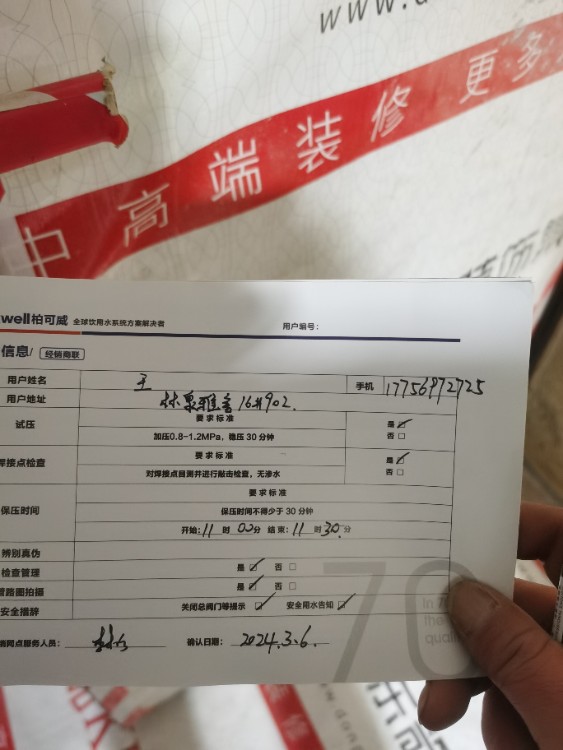 www.d
中高端装修 更多
well柏可威 全球饮用水系统方案解决者 用户编号：
信息/ 经销商联
用户姓名 王 手机 17756972725
用户地址 林泉雅舍16#902.
试压 要求标准 是☑
加压0.8-1.2MPa，稳压 30 分钟 否□
焊接点检查 要求标准 是☑
对焊接点目测并进行敲击检查，无渗水 否□
保压时间 要求标准
保压时间不得少于 30 分钟
开始：11 时 00分 结束：11 时 30.分
辨别真伪
检查管理 是☑ 否□
管路图拍摄 是☑ 否□
安全措辞 关闭总阀门等提示 ☑ 安全用水告知 ☑
70
In 7
the
quali
网点服务人员： 确认日期： 2024.3.6.